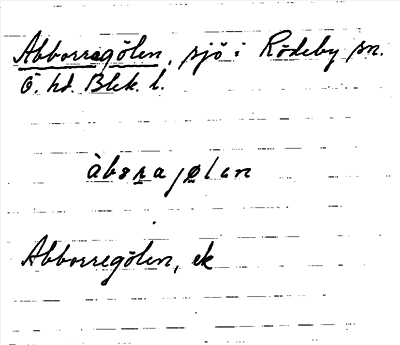 Abborragölen, sjö i Rödeby sn.
Ö. hd. Blek. l.
àbɷra jølan
Abborregölen, ek